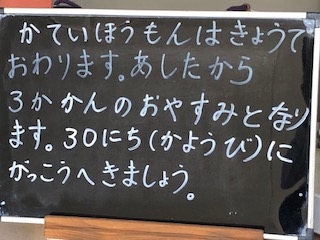 かていほうもんはきょうで
おわります。あしたから
3かかんのおやすみとなり
ます。30にち(かようび)に
がっこうへきましょう。